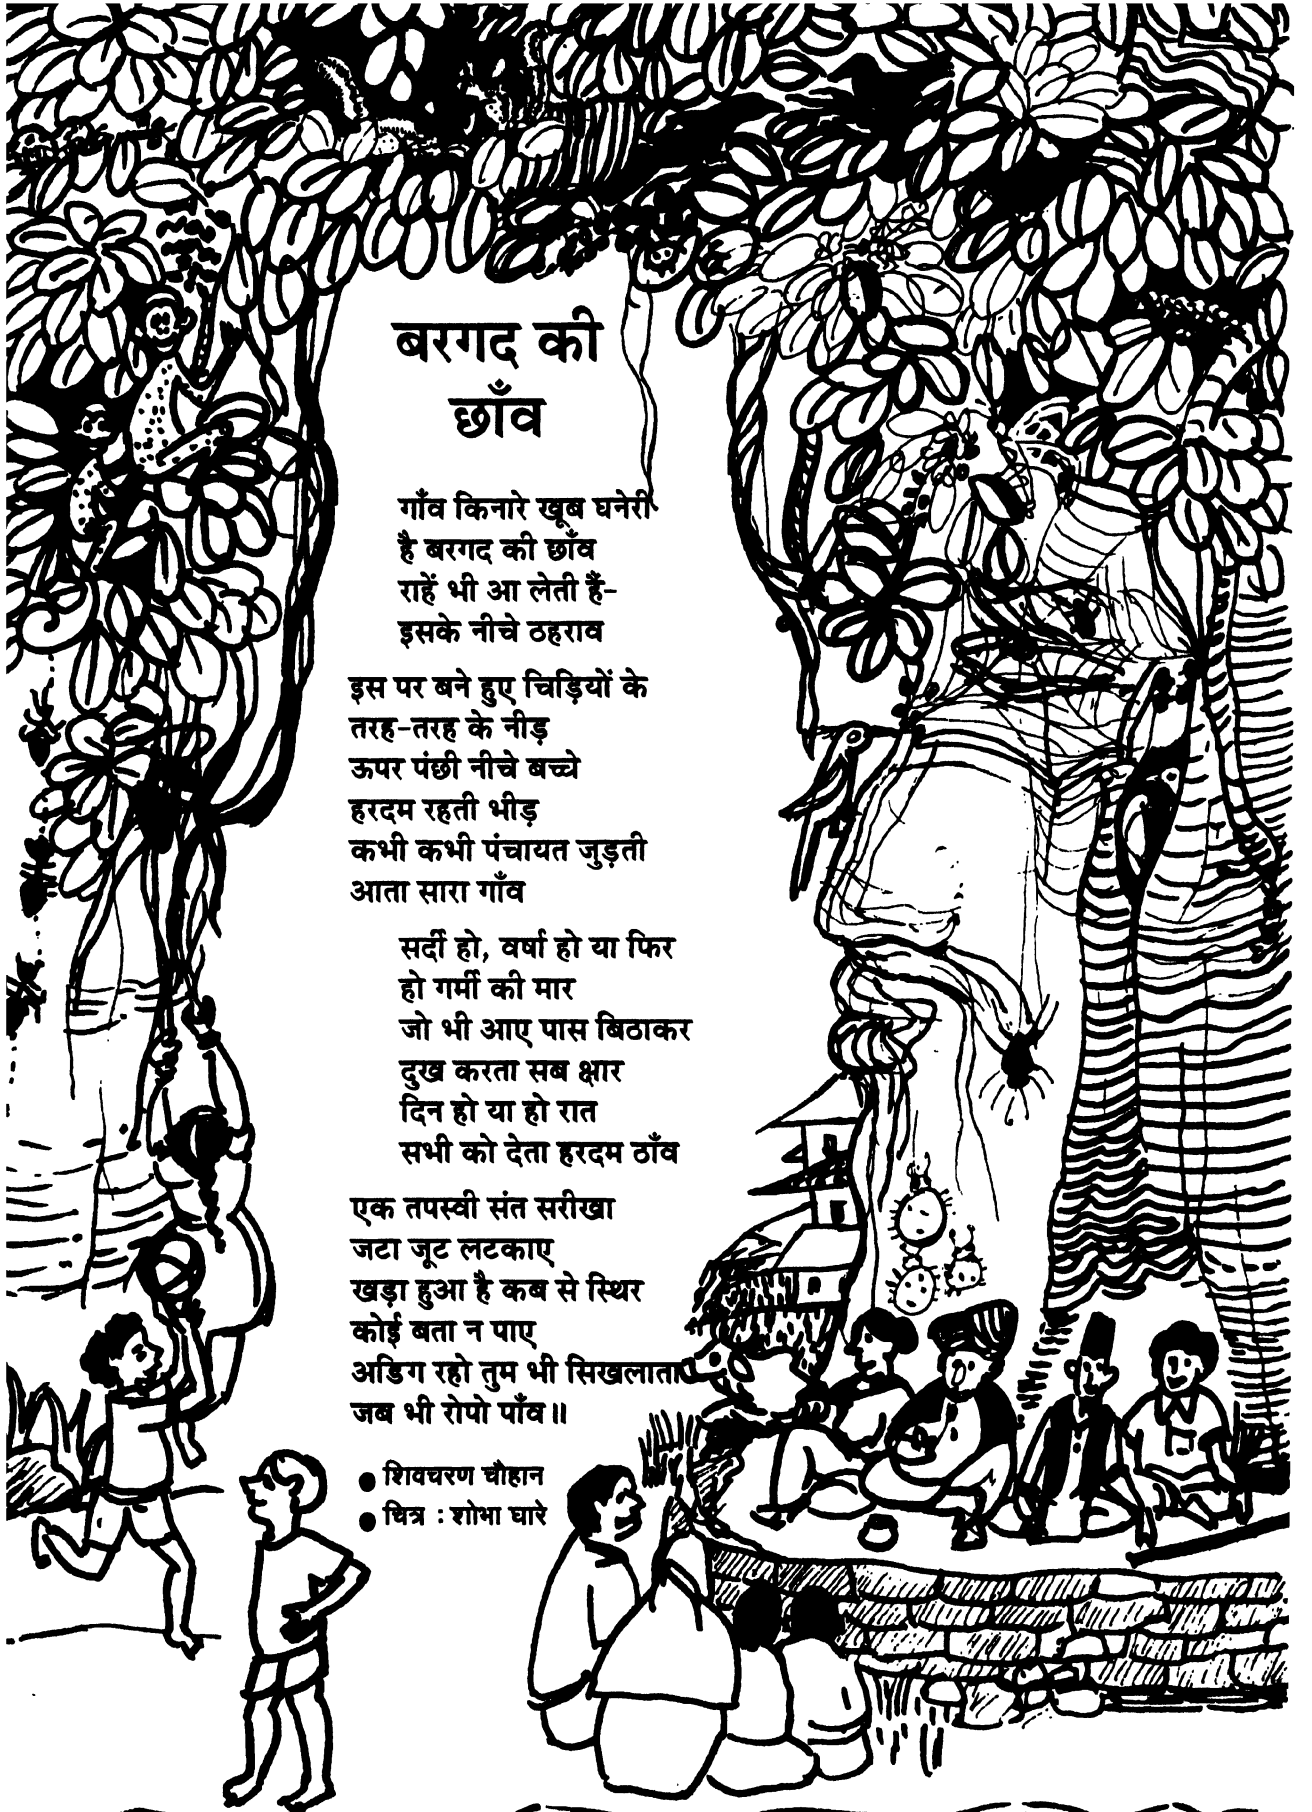 बरगद की
छाँव
गाँव किनारे खूब घनेरी
है बरगद की छाँव
राहें भी आ लेती हैं-
इसके नीचे ठहराव
इस पर बने हुए चिड़ियों के
तरह-तरह के नीड़
ऊपर पंछी नीचे बच्चे
हरदम रहती भीड़
कभी कभी पंचायत जुड़ती
आता सारा गाँव
सर्दी हो, वर्षा हो या फिर
हो गर्मी की मार
जो भी आए पास बिठाकर
दुख करता सब क्षार
दिन हो या हो रात
सभी को देता हरदम ठाँव
एक तपस्वी संत सरीखा
जटा जूट लटकाए
खड़ा हुआ है कब से स्थिर
कोई बता न पाए
अडिग रहो तुम भी सिखलाता
जब भी रोपो पाँव॥
● शिवचरण चौहान
● चित्र : शोभा घारे